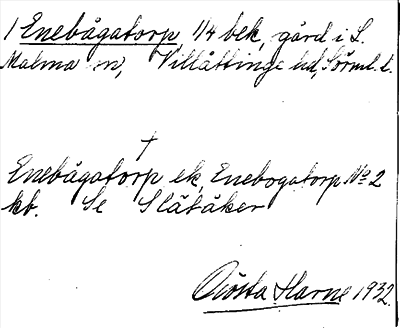 1 Enebågatorp 1/4 bek, gård i L.
Malma sn, Villåttinge hd, Sörml. l.
†
Enebågatorp ek, Enebogatorp No 2
kb. Se Slätåker
Gösta Harne 1932.